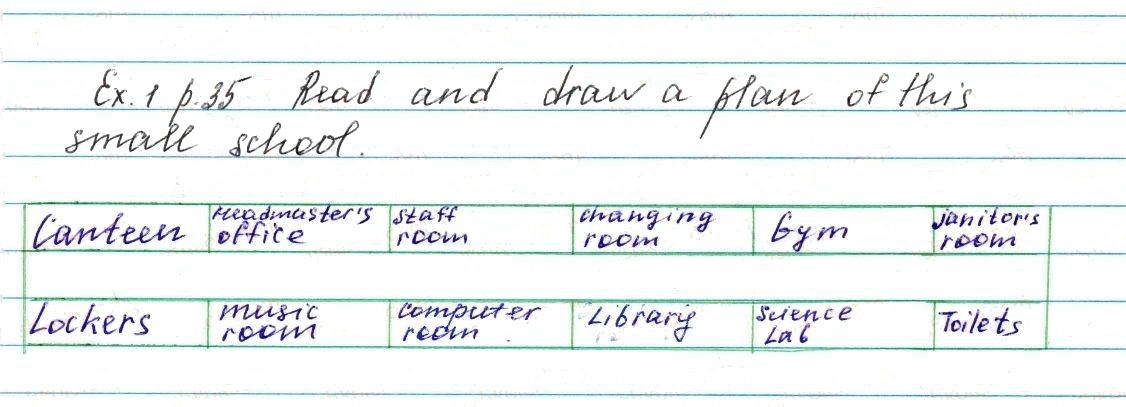 Ex. 1 p. 35 Read and draw a plan of this
small school.
Canteen
Headmaster's
office
staff
room
changing
room
Gym
janitor's
room
Lockers
music
room
computer
room
Library
Science
Lab
Toilets